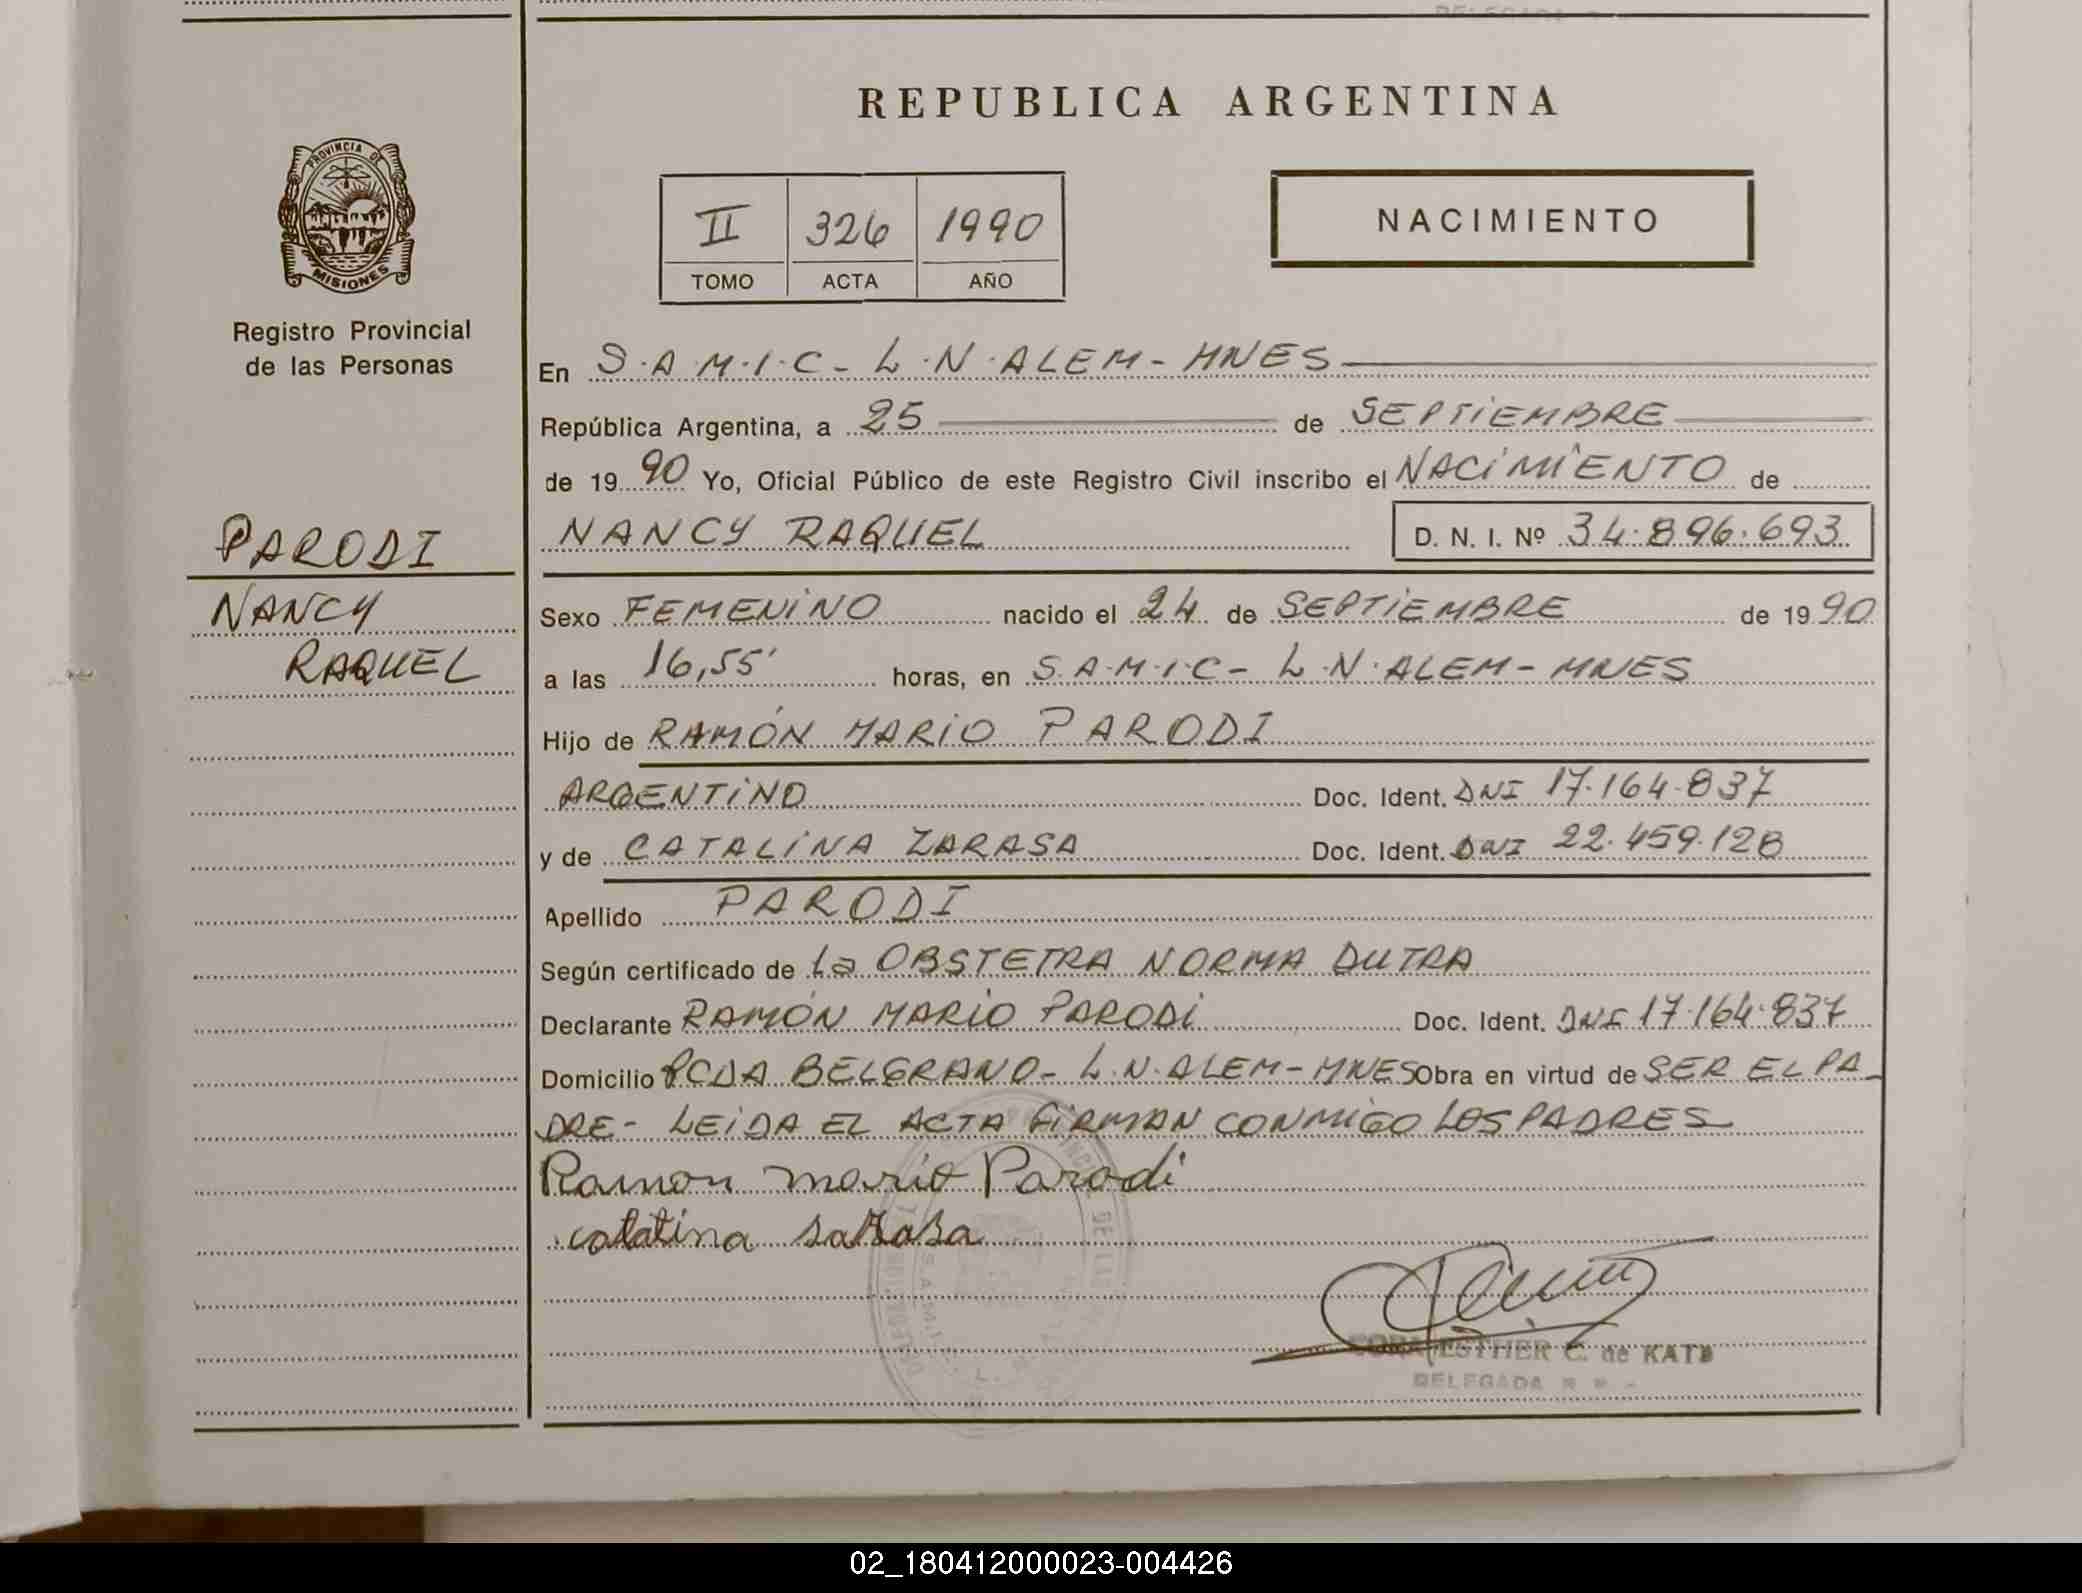 REPUBLICA ARGENTINA
PROVINCIA DE
MISIONES
Registro Provincial
de las Personas
II 326 1990
TOMO ACTA AÑO
NACIMIENTO
En S.A.M.I.C- L.N.ALEM- MNES
República Argentina, a 25 de SEPTIEMBRE
de 1990 Yo, Oficial Público de este Registro Civil inscribo el NACIMIENTO de
NANCY RAQUEL D. N. I. Nº 34.896.693
PARODI
NANCY
RAQUEL
Sexo FEMENINO nacido el 24 de SEPTIEMBRE de 1990
a las 16,55' horas, en S.A.M.I.C- L.N.ALEM- MNES
Hijo de RAMÓN MARIO PARODI
ARGENTINO Doc. Ident. DNI 17.164.837
y de CATALINA ZARASA Doc. Ident. DNI 22.459.128
Apellido PARODI
Según certificado de la OBSTETRA NORMA DUTRA
Declarante RAMÓN MARIO PARODI Doc. Ident. DNI 17.164.837
Domicilio PCDA BELGRANO- L.N.ALEM- MNES Obra en virtud de SER EL PA-
DRE- LEIDA EL ACTA FIRMAN CONMIGO LOS PADRES
Ramon mario Parodi
catatina sarasa
ESTHER C. de KATZ
DELEGADA
02_180412000023-004426